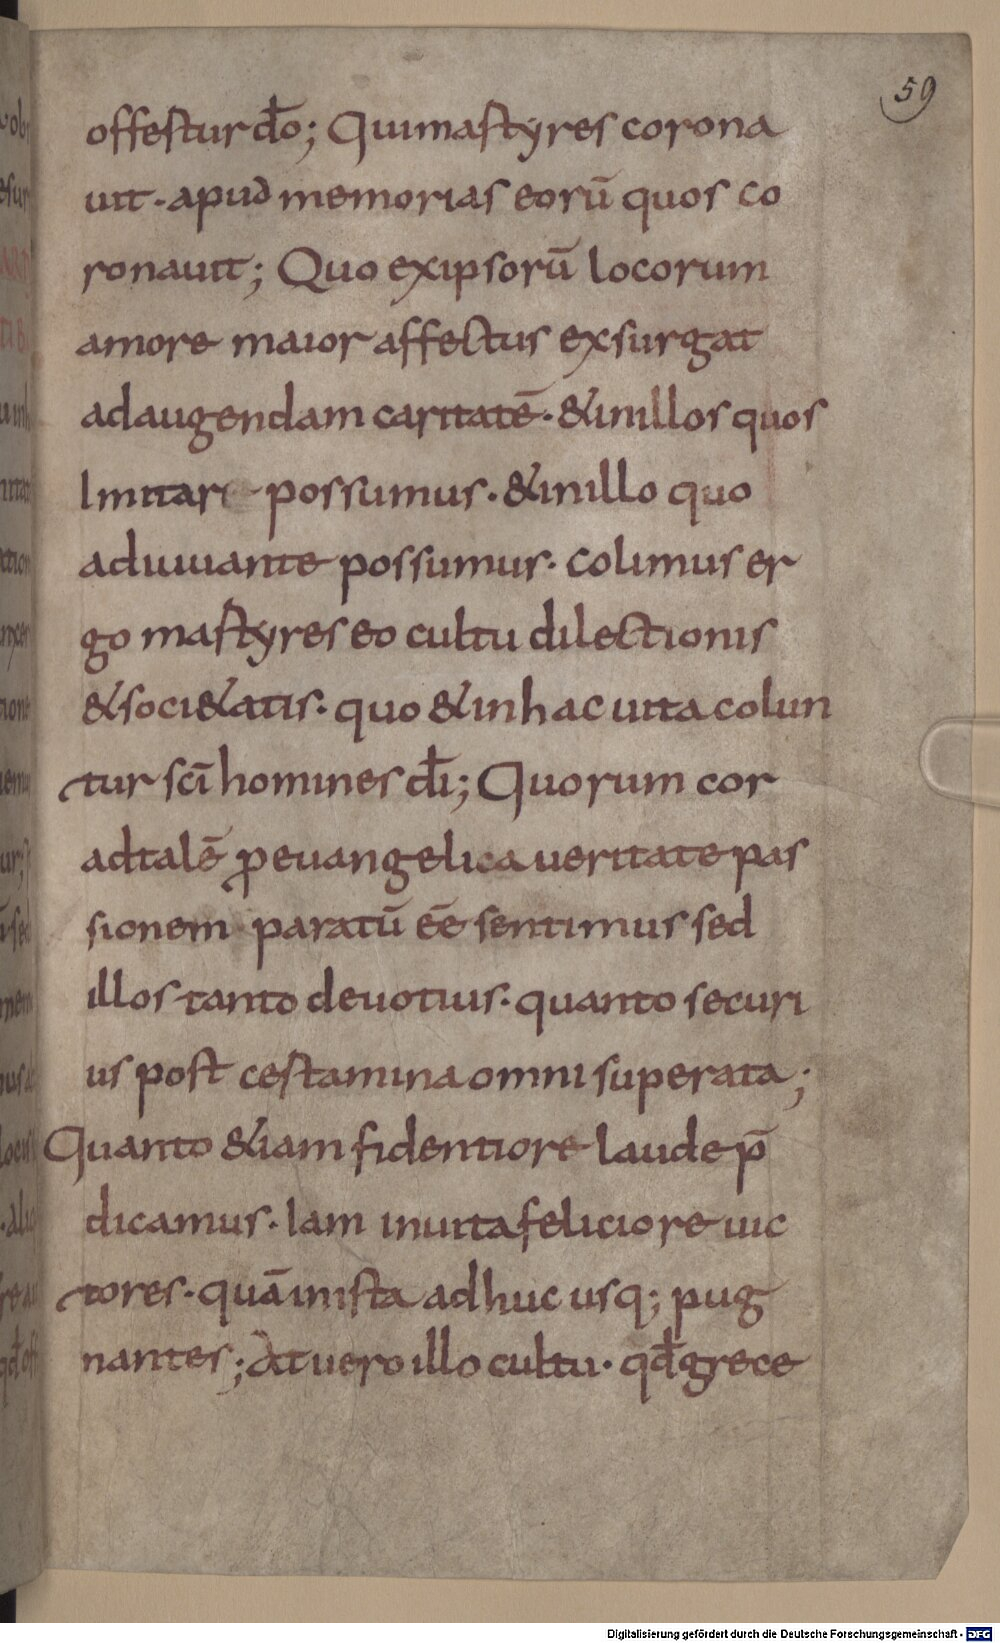 59
offertur dō; Qui martyres corona
uit· apud memorias eorū quos co
ronauit; Quo ex ipsorū locorum
amore maior affectus exsurgat
ad augendam caritatē· & in illos quos
Imitari possumus· & in illo quo
adiuuante possumus· Colimus er
go martyres eo cultu dilectionis
& soci&atis· quo & in hac uita colun
tur sc̄i homines dī; Quorum cor
ad talē ꝓ euangelica ueritate pas
sionem paratū eē sentimus sed
illos tanto deuotius· quanto securi
us post certamina omni superata;
Quanto &iam fidentiore laude p̄
dicamus· Iam in uita feliciore uic
tores· quā in ista adhuc usq; pug
nantes; At uero illo cultu· qđ grece
Digitalisierung gefördert durch die Deutsche Forschungsgemeinschaft - DFG